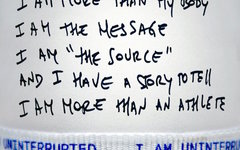 I AM MORE THAN MY BODY
I AM THE MESSAGE
I AM "THE SOURCE"
AND I HAVE A STORY TO TELL
I AM MORE THAN AN ATHLETE
UNINTERRUPTED I AM UNINTERRU